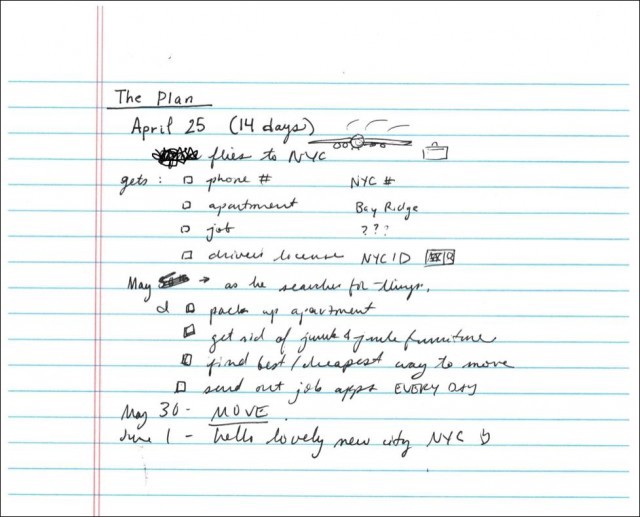 The Plan
April 25 (14 days)
flies to NYC
gets: phone # NYC #
apartment Bay Ridge
job ???
drivers license NYC ID
May → as he searches for things,
I pack up apartment
get rid of junk & junk furniture
find best/cheapest way to move
send out job apps EVERY DAY
May 30 - MOVE
June 1 - hello lovely new city NYC